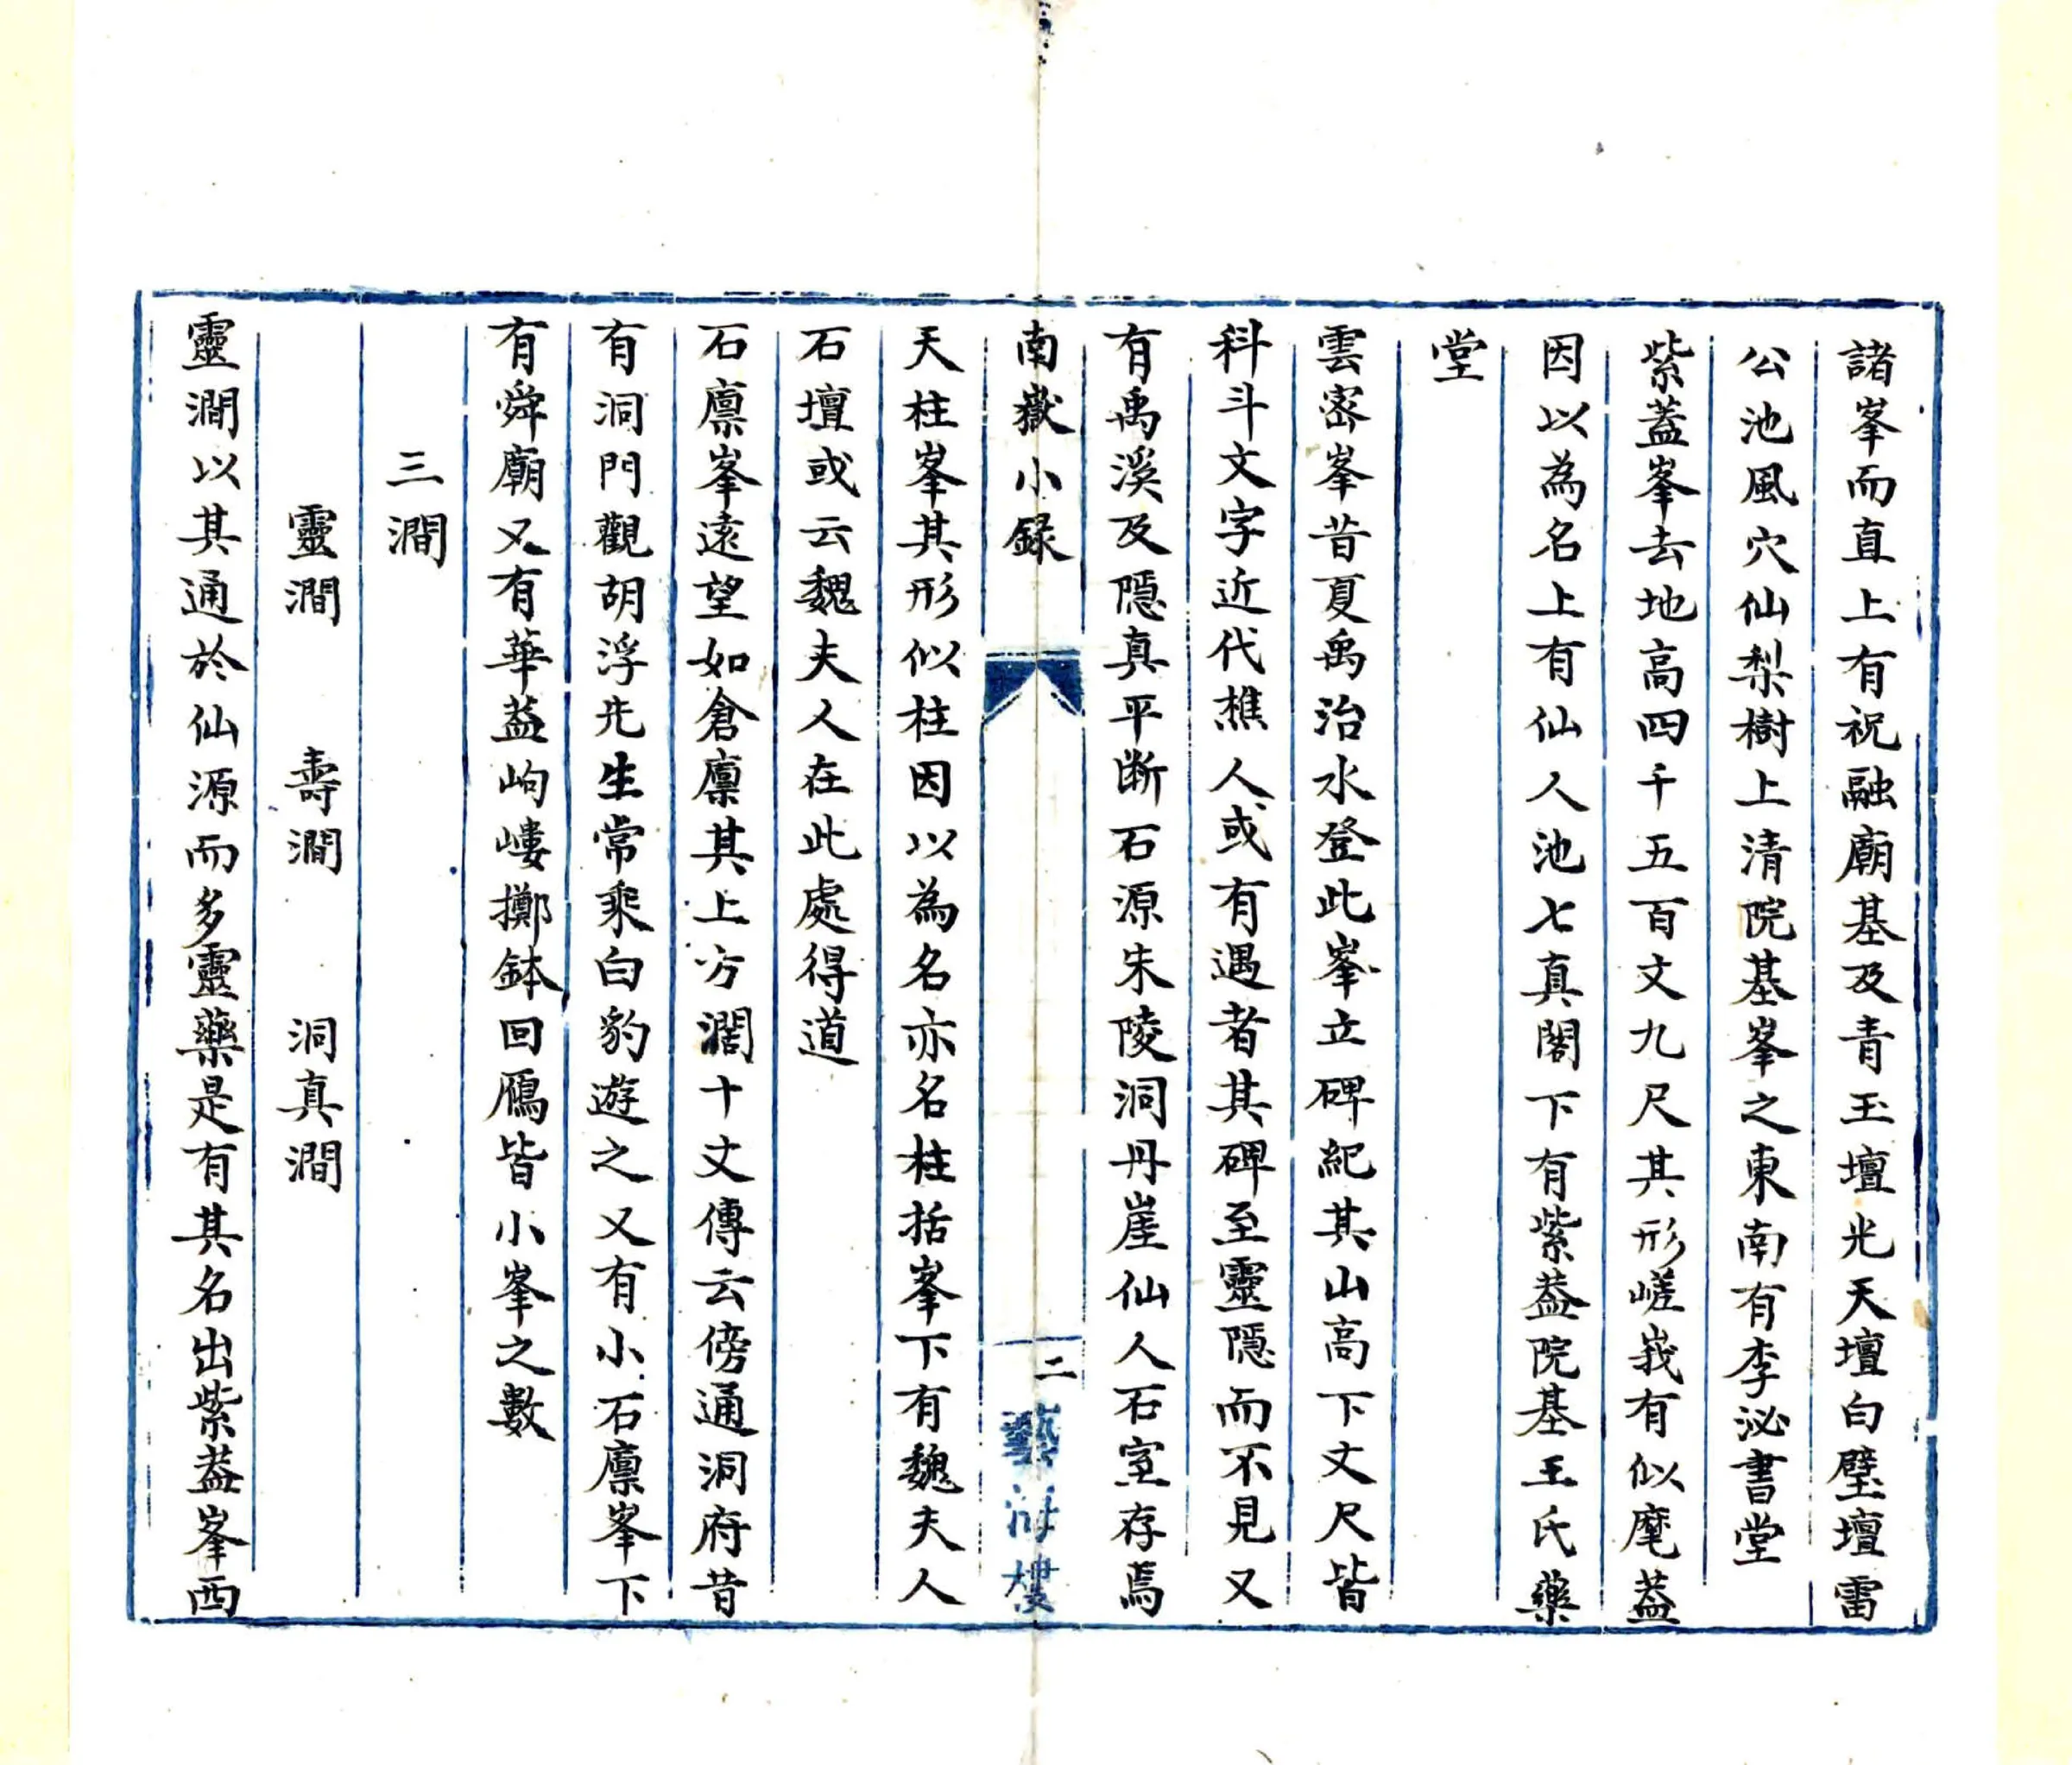 諸峯而直上有祝融廟基及青玉壇光天壇白璧壇雷
公池風穴仙梨樹上清院基峯之東南有李泌書堂
紫蓋峯去地高四千五百丈九尺其形嵯峩有似麾蓋
因以為名上有仙人池七真閣下有紫葢院基王氏藥
堂
雲密峯昔夏禹治水登此峯立碑紀其山高下丈尺皆
科斗文字近代樵人或有遇者其碑至靈隱而不見又
有禹溪及隱真平断石源朱陵洞丹崖仙人石室存焉
南嶽小録
二
藝海樓
天柱峯其形似柱因以為名亦名柱括峯下有魏夫人
石壇或云魏夫人在此處得道
石廪峯遠望如倉廪其上方濶十丈傳云傍通洞府昔
有洞門觀胡浮先生常乘白豹遊之又有小石廪峯下
有舜廟又有華葢岣嶁擲鉢回鴈皆小峯之數
三澗
靈澗 壽澗 洞真澗
靈澗以其通於仙源而多靈藥是有其名出紫葢峯西